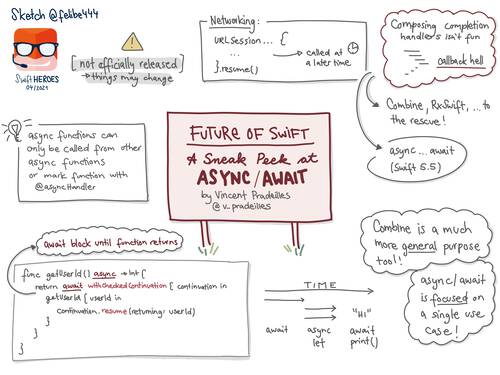 Sketch @felibe444
Swift HEROES
04/2021
not officially released
→ things may change
Networking:
URLSession ... {
... → called at
a later time
}.resume()
Composing completion
handlers isn't fun
callback hell
Combine, RxSwift, ... to
the rescue!
async ... await
(Swift 5.5)
async functions can
only be called from other
async functions
or mark function with
@asyncHandler
FUTURE OF SWIFT
A Sneak Peek at
ASYNC/AWAIT
by Vincent Pradeilles
@v_pradeilles
await block until function returns
func getUserId() async → Int {
return await withCheckedContinuation { continuation in
getUserId { userId in
continuation.resume(returning: userId)
}
}
}
TIME
"HI"
await
async
let
await
print()
Combine is a much
more general purpose
tool!
async/await
is focused on
a single use
case!